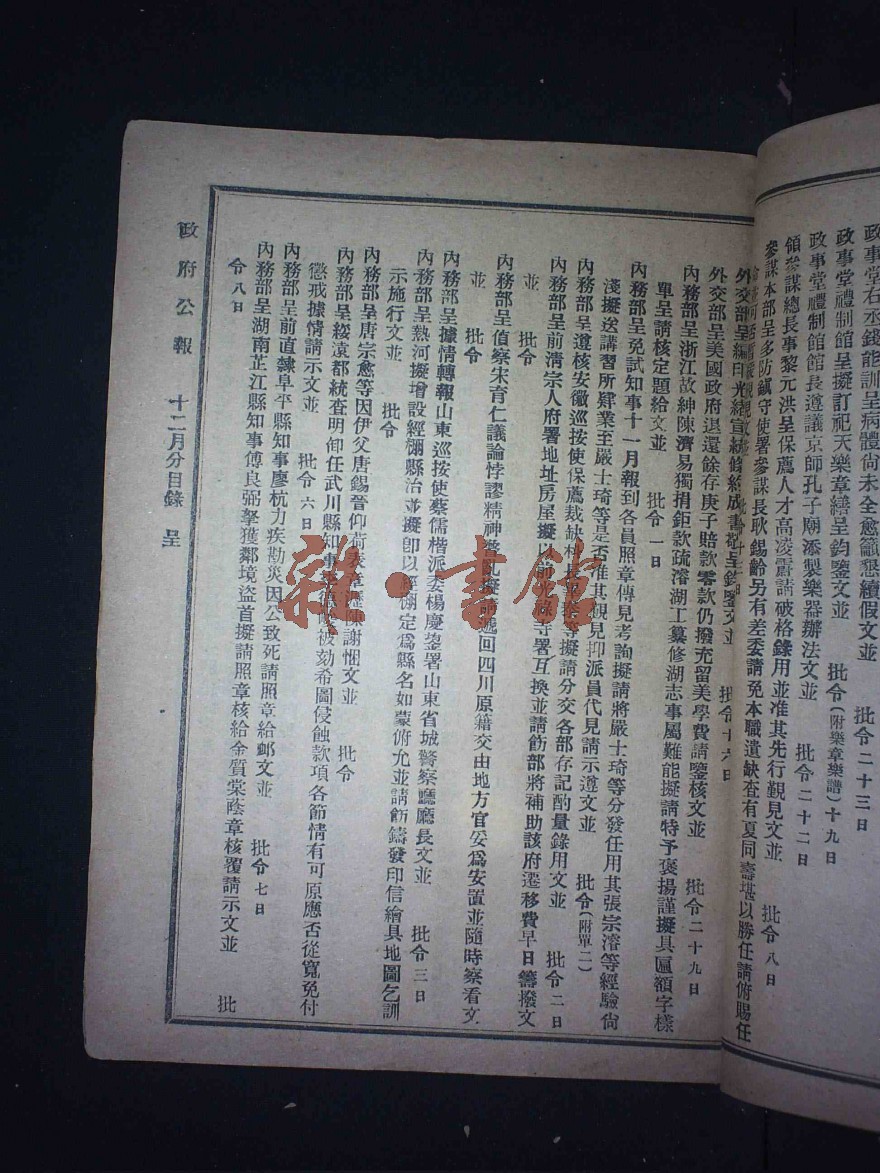 政事堂右丞錢能訓呈病體尚未全愈籲懇續假文並　批令二十三日
政事堂禮制館呈擬訂祀天樂章繕呈鈞鑒文並　批令(附樂章樂譜)十九日
政事堂禮制館館長遵議京師孔子廟添製樂器辦法文並　批令二十二日
領參謀總長事黎元洪呈保薦人才高凌霨請破格錄用並准其先行覲見文並　批令八日
參謀本部呈多防鎮守使署參謀長耿錫齡另有差委請免本職遺缺查有夏同壽堪以勝任請俯賜任
外交部呈編印光緒宣統條約成書敬呈鈞鑒文並
外交部呈美國政府退還餘存庚子賠款零款仍撥充留美學費請鑒核文並　批令十六日
內務部呈浙江故紳陳濟易獨捐鉅款疏濬湖工纂修湖志事屬難能擬請特予褒揚謹擬具匾額字樣　批令二十九日
單呈請核定題給文並　批令一日
內務部呈免試知事十一月報到各員照章傳見考詢擬請將嚴士琦等分發任用其張宗濬等經驗尚
淺擬送講習所肄業至嚴士琦等是否准其覲見抑派員代見請示遵文並　批令(附單二)
內務部呈遵核安徽巡按使保薦裁缺等擬請分交各部存記酌量錄用文並　批令二日
內務部呈前清宗人府署地址房屋擬以前光祿寺署互換並請飭部將補助該府遷移費早日籌撥文
並　批令
內務部呈偵察宋育仁議論悖謬精神瞀亂擬請遞回四川原籍交由地方官妥為安置並隨時察看文
並　批令
內務部呈據情轉報山東巡按使蔡儒楷派委楊慶鋆署山東省城警察廳廳長文並　批令三日
內務部呈熱河擬增設經棚縣治並擬即以經棚定為縣名如蒙俯允並請飭鑄發印信繪具地圖乞訓
示施行文並　批令
內務部呈唐宗愈等因伊父唐錫晉仰荷表章瀝陳謝悃文並　批令
內務部呈綏遠都統查明卸任武川縣知事被劾希圖侵蝕款項各節情有可原應否從寬免付
懲戒據情請示文並　批令六日
內務部呈前直隸阜平縣知事廖杭力疾勘災因公致死請照章給卹文並　批令七日
內務部呈湖南芷江縣知事傅良弼拏獲鄰境盜首擬請照章核給金質棠蔭章核覆請示文並　批
令八日
政府公報　十二月分目錄　呈
雜·書館